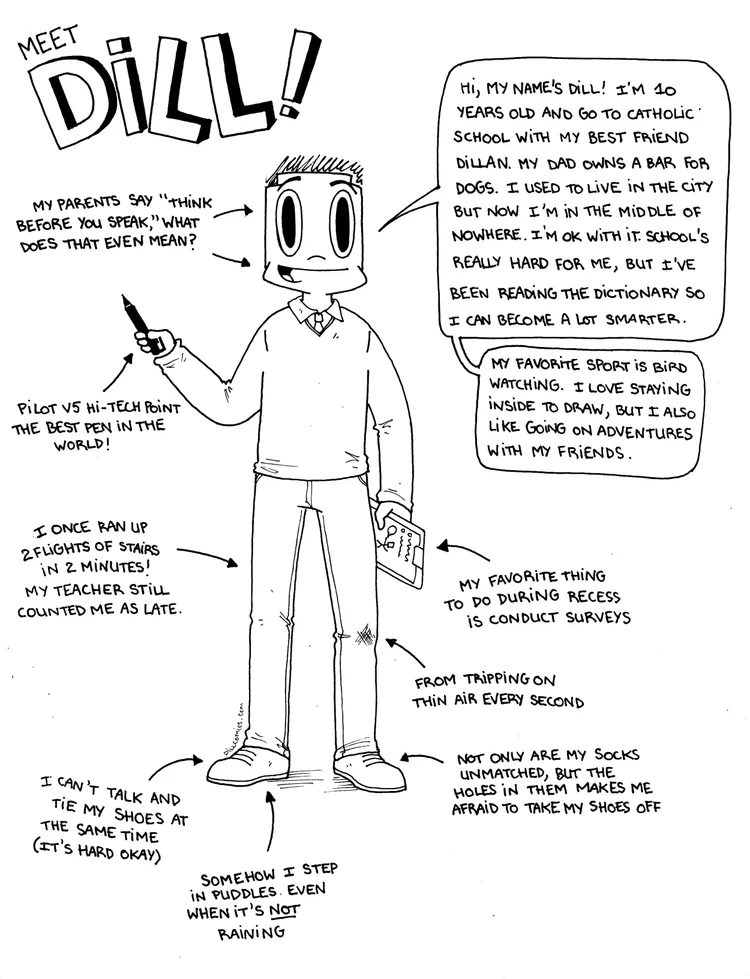 MEET
DiLL!
HI, MY NAME'S DILL! I'M 10
YEARS OLD AND GO TO CATHOLIC
SCHOOL WITH MY BEST FRIEND
DILLAN. MY DAD OWNS A BAR FOR
DOGS. I USED TO LIVE IN THE CITY
BUT NOW I'M IN THE MIDDLE OF
NOWHERE. I'M OK WITH IT. SCHOOL'S
REALLY HARD FOR ME, BUT I'VE
BEEN READING THE DICTIONARY SO
I CAN BECOME A LOT SMARTER.
MY FAVORITE SPORT IS BIRD
WATCHING. I LOVE STAYING
INSIDE TO DRAW, BUT I ALSO
LIKE GOING ON ADVENTURES
WITH MY FRIENDS.
MY PARENTS SAY "THINK
BEFORE YOU SPEAK," WHAT
DOES THAT EVEN MEAN?
PILOT V5 HI-TECH POINT
THE BEST PEN IN THE
WORLD!
I ONCE RAN UP
2 FLIGHTS OF STAIRS
IN 2 MINUTES!
MY TEACHER STILL
COUNTED ME AS LATE.
MY FAVORITE THING
TO DO DURING RECESS
IS CONDUCT SURVEYS
FROM TRIPPING ON
THIN AIR EVERY SECOND
DILLCOMICS.COM
NOT ONLY ARE MY SOCKS
UNMATCHED, BUT THE
HOLES IN THEM MAKES ME
AFRAID TO TAKE MY SHOES OFF
I CAN'T TALK AND
TIE MY SHOES AT
THE SAME TIME
(IT'S HARD OKAY)
SOMEHOW I STEP
IN PUDDLES. EVEN
WHEN IT'S NOT
RAINING